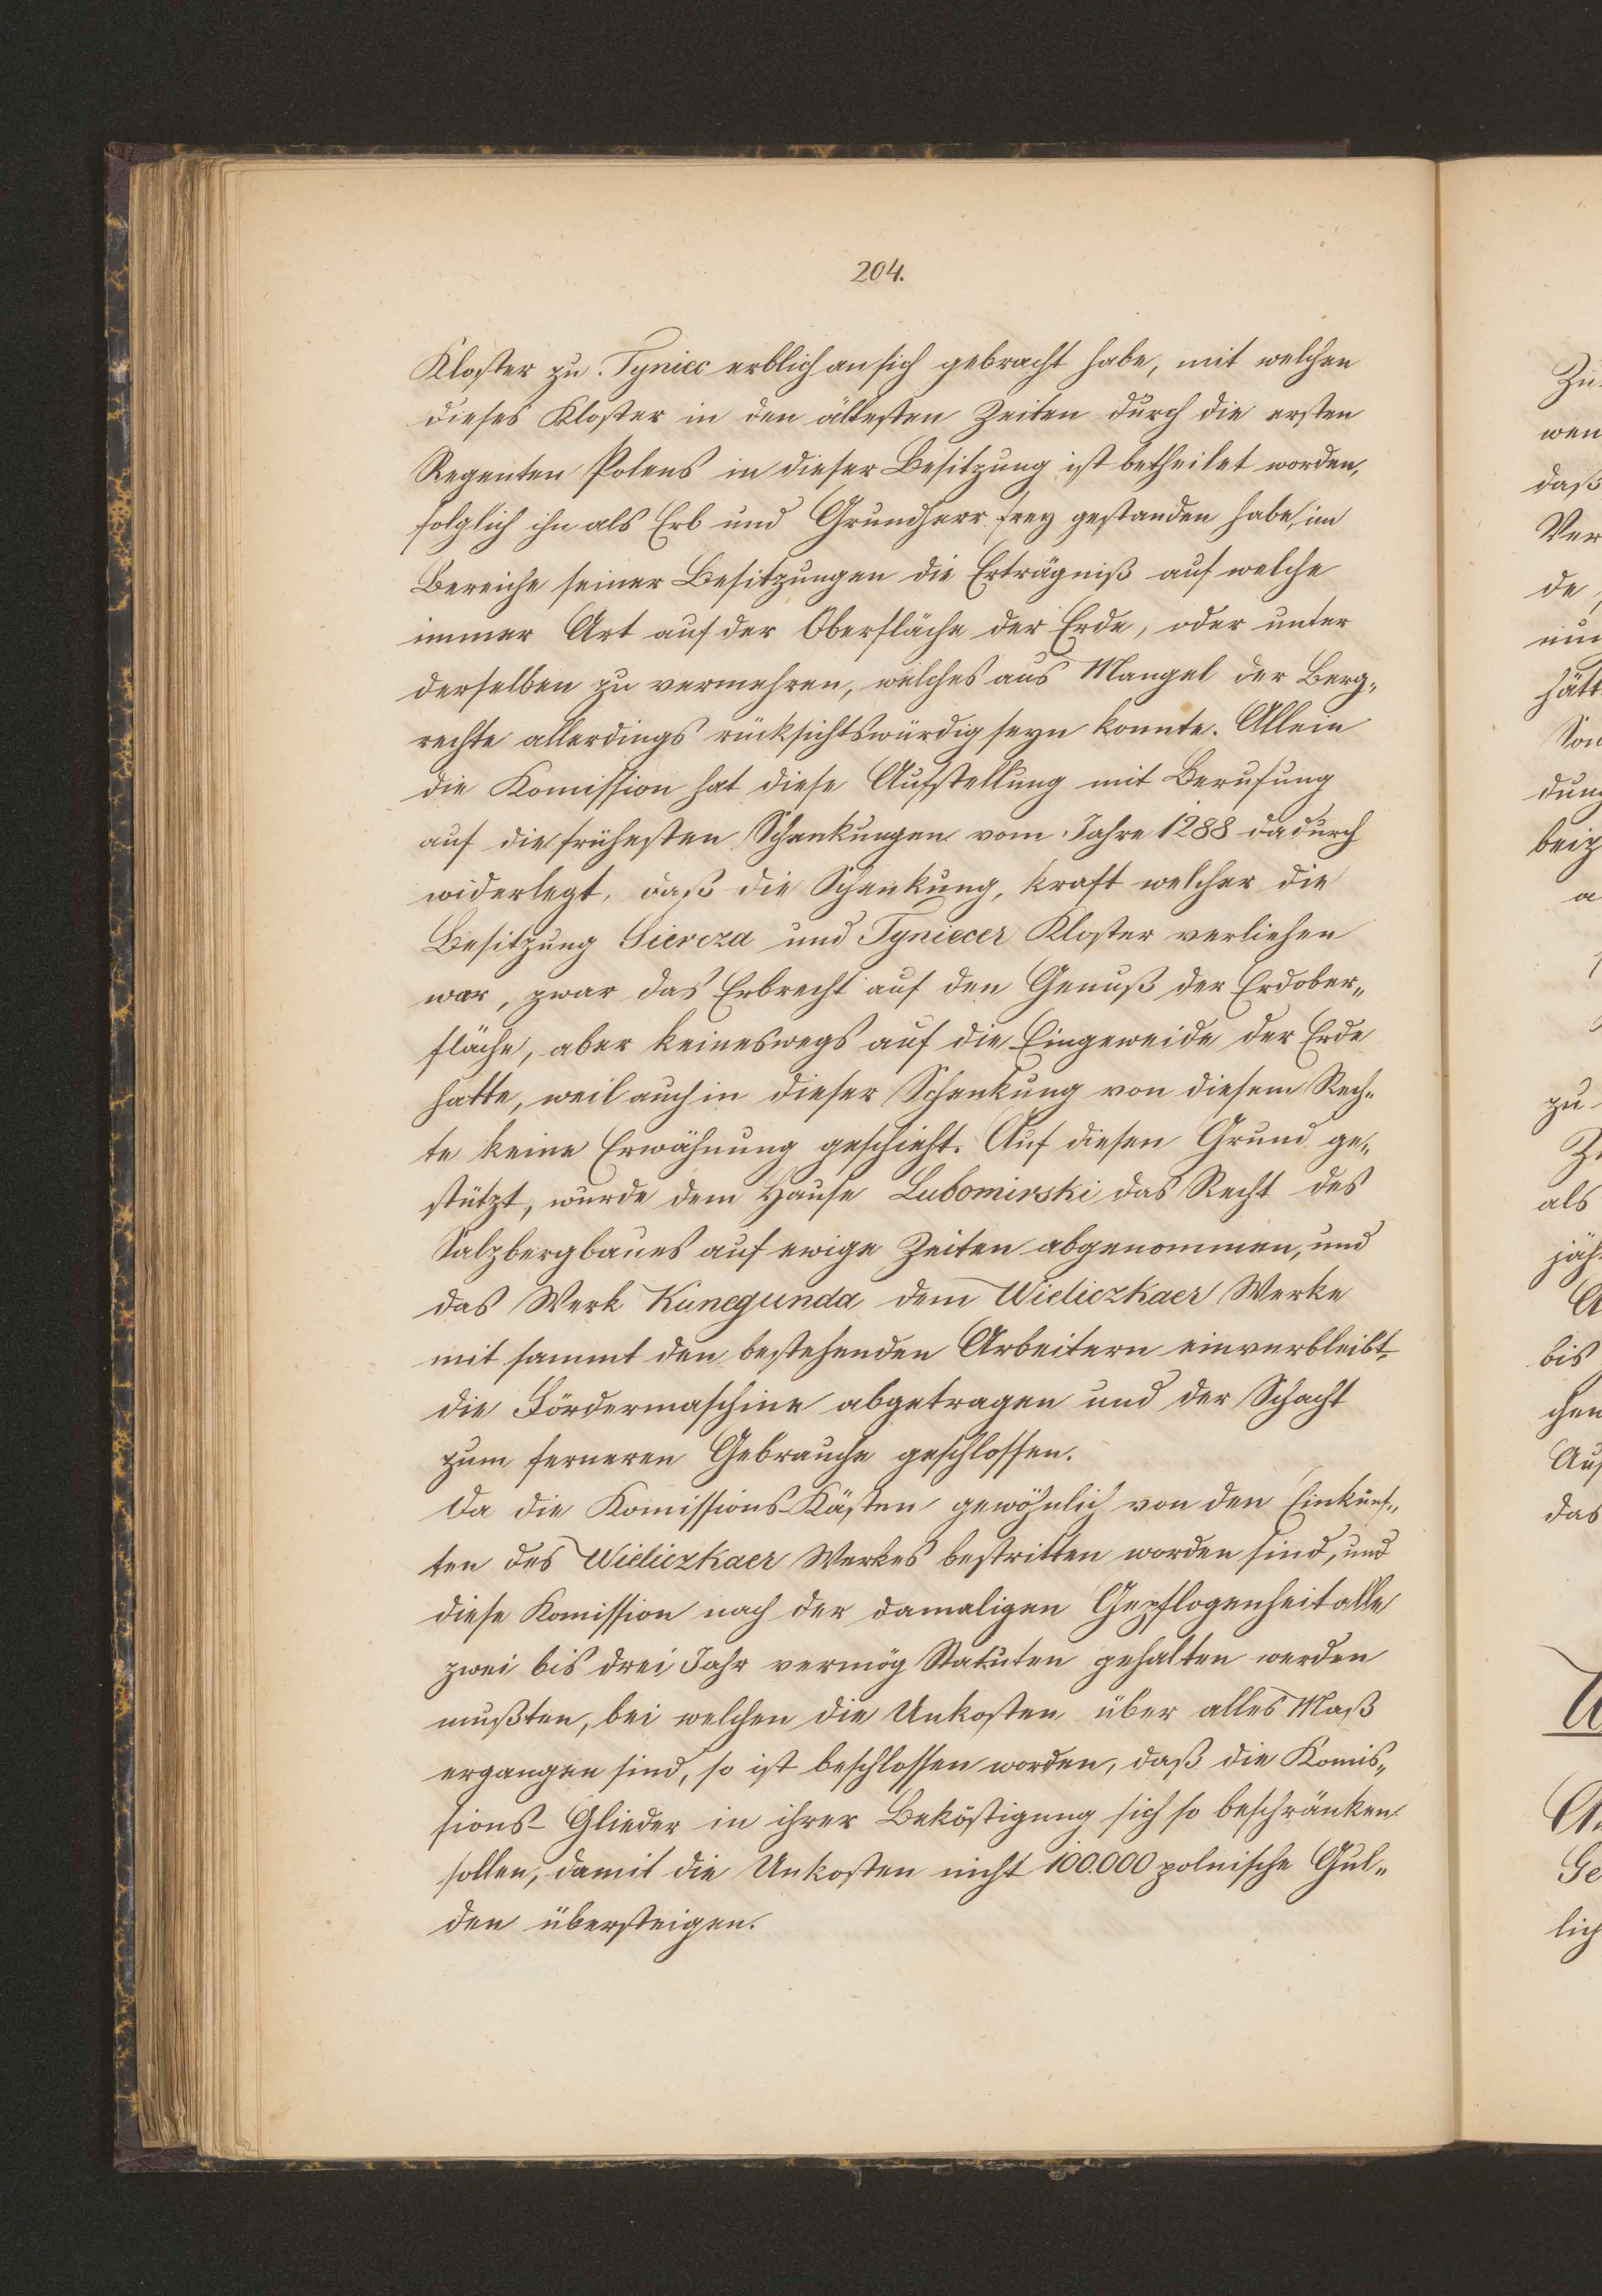 204.
Kloster zu Tyniec erblich an sich gebracht habe, mit welchen
dieses Kloster in den ältesten Zeiten durch die ersten
Regenten Polens in dieser Besitzung ist betheilet worden,
folglich ihn als Erb und Grundherr frey gestanden habe, im
Bereiche seiner Besitzungen die Erträgniß auf welche
immer Art auf der Oberfläche der Erde, oder unter
derselben zu vermehren, welches aus Mangel der Berg„
rechte allerdings rücksichtswürdig seyn konnte. Allein
die Komission hat diese Aufstellung mit Berufung
auf die frühesten Schankungen vom Jahre 1288 dadurch
widerlegt, daß die Schenkung, kraft welcher die
Besitzung Siercza und Tyniecer Kloster verliehen
war, zwar das Erbrecht auf den Genuß der Erdober„
fläche, aber keineswegs auf die Eingeweide der Erde
hatte, weil auch in dieser Schenkung von diesem Rech„
te keine Erwähnung geschieht. Auf diesen Grund ge„
stützt, wurde dem Hause Lubomirski das Recht des
Salzbergbaues auf ewige Zeiten abgenommen, und
das Werk Kunegunda dem Wieliczkaer Werke
mit sammt den bestehenden Arbeitern einverbleibt,
die Fördermaschine abgetragen und der Schacht
zum ferneren Gebrauche geschlossen.
Da die Komissions-Kästen gewöhnlich von den Einkünf„
ten des Wieliczkaer Werkes bestritten worden sind, und
diese Komission nach der damaligen Gepflogenheit alle
zwei bis drei Jahr vermög Statuten gehalten werden
mußten, bei welchen die Unkosten über alles Maß
ergangen sind, so ist beschlossen worden, daß die Komis„
sions- Glieder in ihrer Beköstigung sich so beschränken
sollen, damit die Unkosten nicht 100.000 polnische Gul„
den übersteigen.